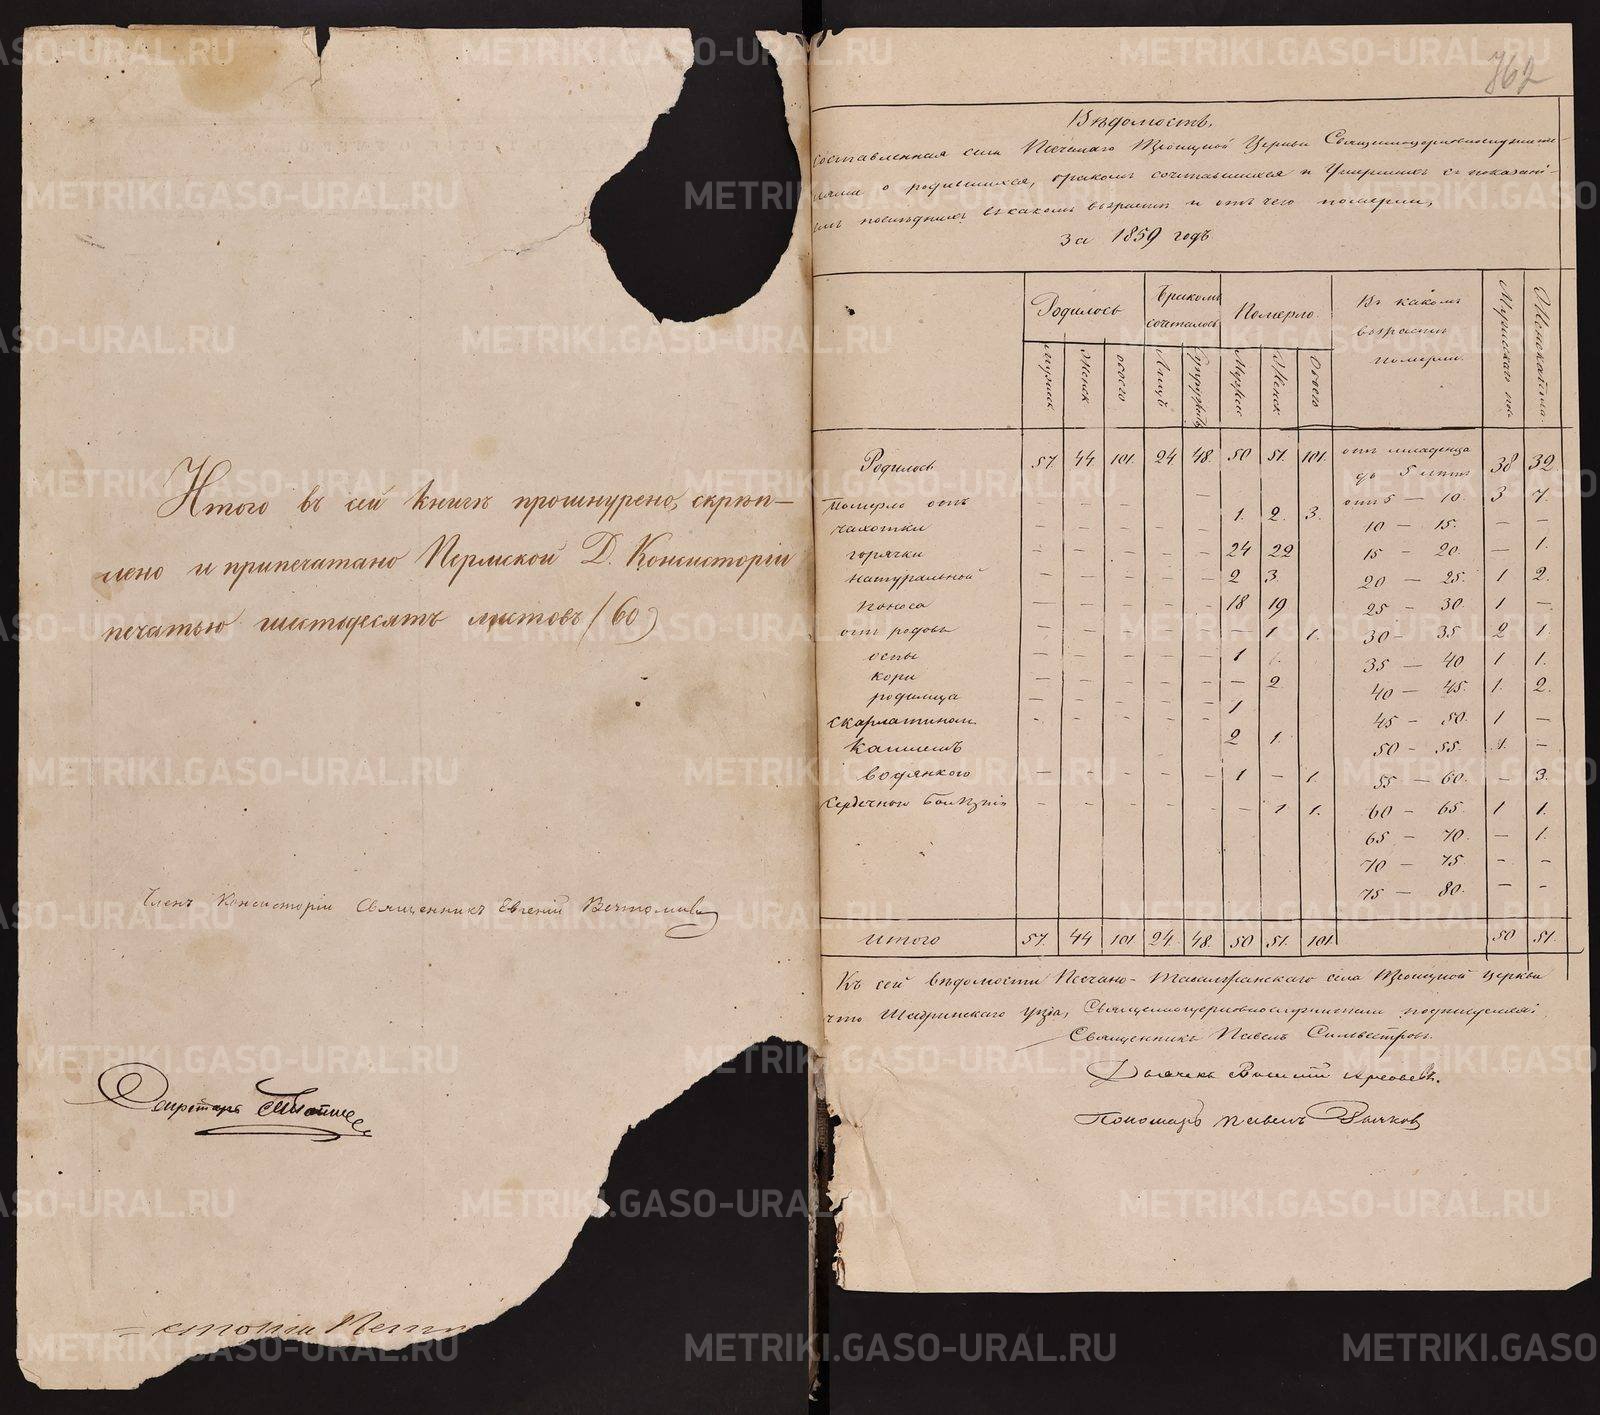 Итого въ сей книгѣ прошнурено, скрѣп-
лено и припечатано Пермской Д. Консисторіи
печатью шестьдесятъ листовъ (60)
Членъ Консисторіи Священникъ Евгеній
Секретарь
762
Вѣдомость,
составленная села Песчанаго Троицкой Церкви Священноцерковнослужите-
лями о родившихся, бракомъ сочетавшихся и Умершихъ съ показані-
емъ послѣднихъ въ какомъ возрастѣ и отъ чего померли,
За 1859 годъ
Родилось Бракомъ сочеталось Померло. Въ какомъ возрастѣ померли. Мужскаго по. Женска пола.
мужск Женск обоего Лицъ Супружѣ Мужск Женск. Обоего
Родилось 57 44 101. 24 48. 50 51. 101. отъ младенца до 5 лѣтъ 38 32.
Померло отъ чахотки - - - - - 1. 2. 3. отъ 5 — 10. 3 7.
10 — 15. — —
горячки - - - - - 24 22 15 — 20. — 1.
натуральной - - - - - 2 3 20 — 25. 1 2.
поноса - - - - - 18 19 25 — 30. 1 —
отъ родовъ - - - - - — 1 1. 30 — 35 2 1.
оспы - - - - - 1 35 — 40 1 1.
кори - - - - - — 2 40 — 45. 1. 2.
родимца - - - - - 1 45 — 50. 1 —
скарлатиною
Кашлемъ 2 1. 50 — 55. 1. —
водянкого - - - - - 1 — 1. 55 — 60. — 3.
Сердечного болѣзнію - - - - - — 1 1. 60 — 65. 1 1.
65 — 70. — 1.
70 — 75 - -
75 — 80. - -
итого 57. 44 101 24 48. 50 51. 101. 50 51.
Къ сей вѣдомости Песчано-Таволжанскаго села Троицкой церкви
что Шадринскаго уѣзда, Священноцерковнослужители подписались:
Священникъ Павелъ Сильвестровъ.
Дьячекъ Василій
Пономарь Павелъ Рычков
METRIKI.GASO-URAL.RU